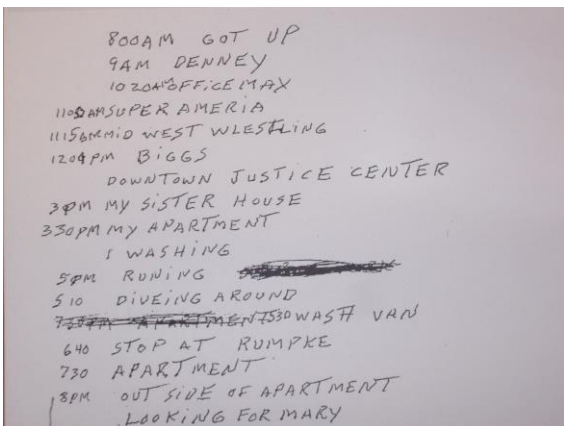 800AM GOT UP
9AM DENNEY
1020AM OFFICE MAX
1100AM SUPER AMERIA
1115AM MID WEST WLESTLING
1204PM BIGGS
DOWNTOWN JUSTICE CENTER
3PM MY SISTER HOUSE
330PM MY APARTMENT
I WASHING
5PM RUNING
510 DIVEING AROUND
730PM APARTMENT 530 WASH VAN
640 STOP AT RUMPKE
730 APARTMENT
8PM OUT SIDE OF APARTMENT
LOOKING FOR MARY